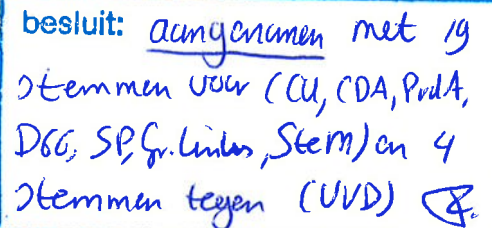 besluit: aangenomen met 19
stemmen voor (CU, CDA, PvdA,
D66, SP, Gr. Links, Stem) en 4
stemmen tegen (VVD)